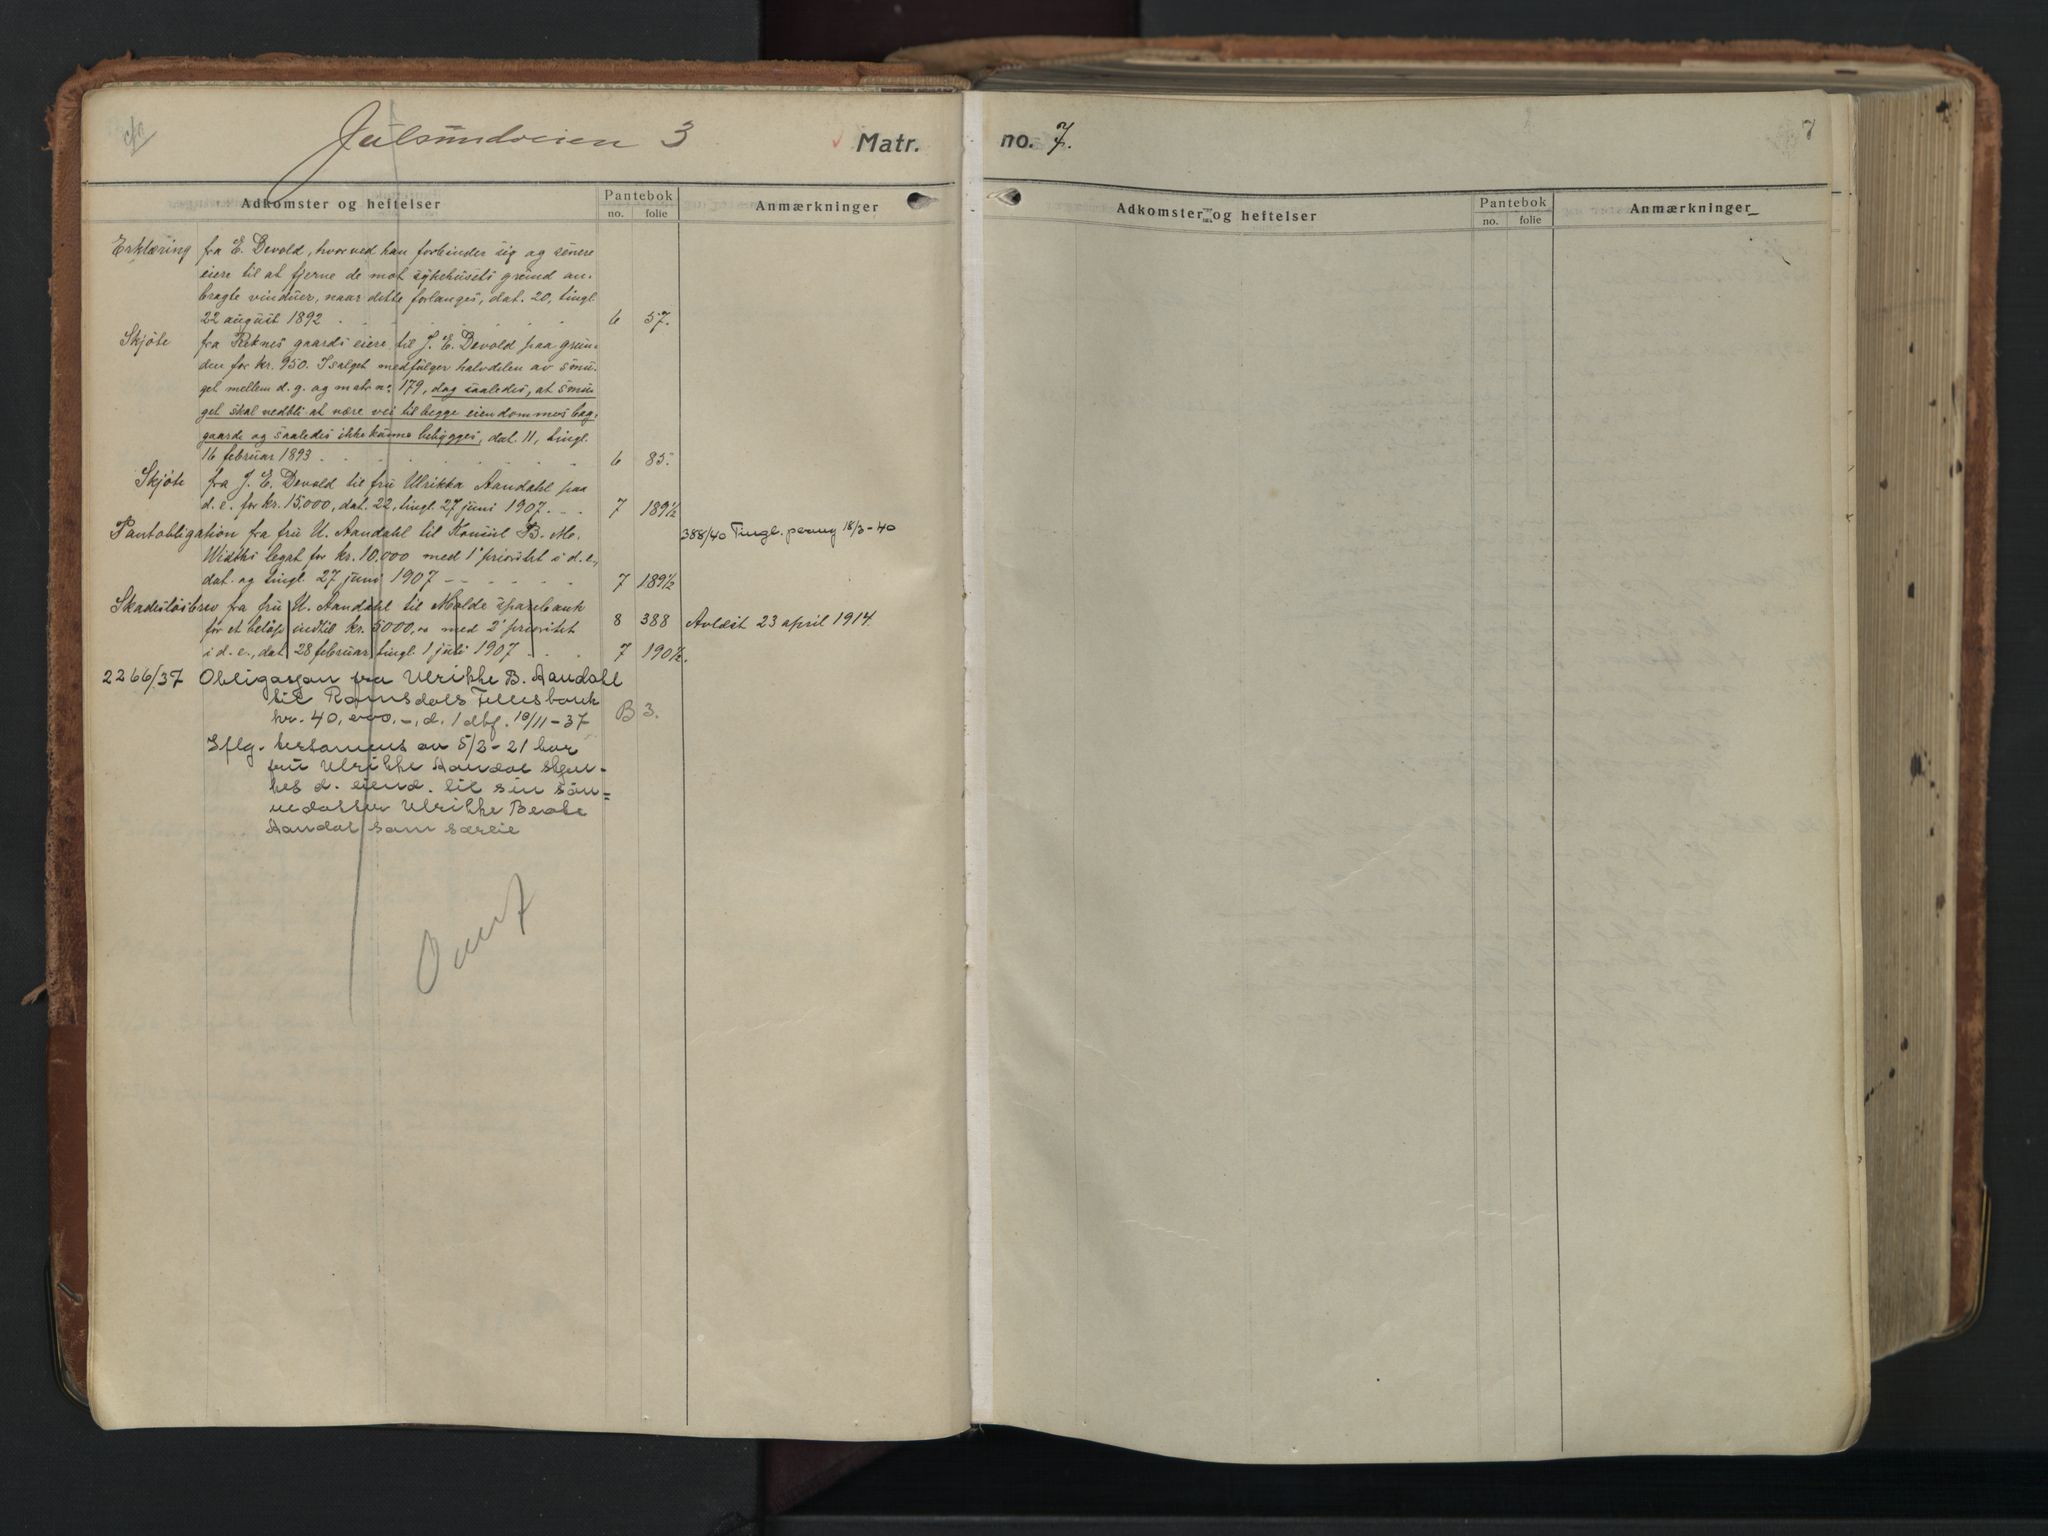 Julsundveien 3 Matr. no. 7. 7
Adkomster og heftelser Pantebok no. folie Anmærkninger
Adkomster og heftelser Pantebok no. folie Anmærkninger
Erklæring fra E. Devold, hvorved han forbinder sig og senere
eiere til at fjerne de mot sykehusets grund an-
bragte vinduer, naar dette forlanges, dat. 20, tingl.
22 august 1892 . . . . . . 6 57.
Skjøte fra Reknes gaards eiere til J. E. Devold paa grun-
den for kr. 950. I salget medfølger halvdelen av smu-
get mellem d. g. og matr. no 179, dog saaledes, at smu-
get skal vedbli at være vei til begge eiendommes bag-
gaarde og saaledes ikke kunne bebygges, dat. 11, tingl.
16 februar 1893 . . . . . . 6 85.
Skjøte fra J. E. Devold til fru Ulrikka Aandahl paa
d. e. for kr. 15.000, dat. 22, tingl. 27 juni 1907 . . . 7 189½
Pantobligation fra fru U. Aandahl til Konsul B. M. 388/40 Tingl. paany 18/3-40
Widths legat for kr. 10.000 med 1' prioritet i d. e.,
dat. og tingl. 27 juni 1907 - - - - - 7 189½
Skadesløsbrev fra fru U. Aandahl til Molde sparebank
for et beløp indtil kr. 5000,00 med 2' prioritet 8 388 Avlæst 23 april 1914.
i d. e., dat. 28 februar, tingl. 1 juli 1907 . . . 7 190½.
2266/37 Obligasjon fra Ulrikke B. Aandahl
til Romsdals Fellesbank
kr. 40,000,-, d. 1 dbf. 10/11-37 B 3.
Iflg. testament av 5/3-21 har
fru Ulrikke Aandal skjen-
kes d. eiend. til sin sön-
nedatter Ulrikke Beate
Aandal som særeie